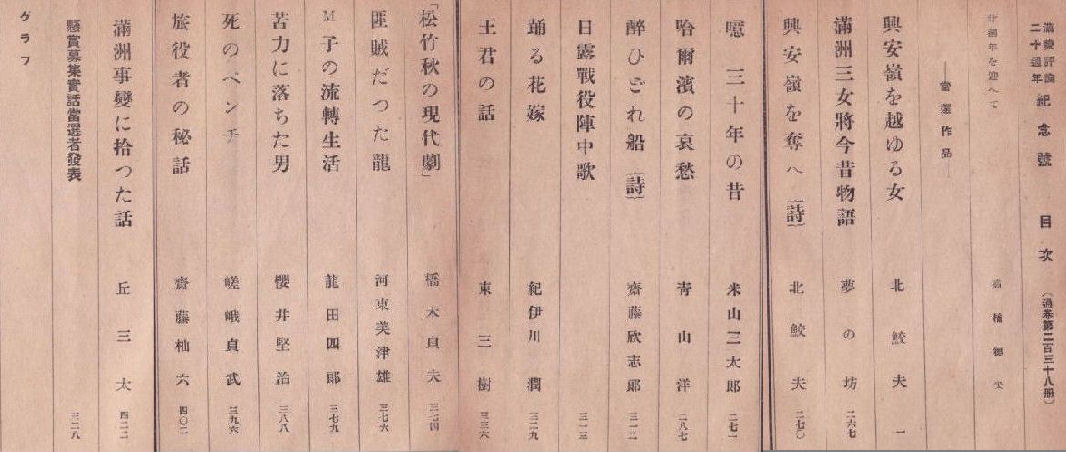 滿蒙評論二十週年 紀念號 目次 (通卷第二百三十八册)
廿週年を迎へて
―當選作品―
興安嶺を越ゆる女 北鮫夫 一
滿洲三女將今昔物語 夢の坊 二六七
興安嶺を奪へ(詩) 北鮫夫 二七〇
噫 三十年の昔 米山三太郎 二七一
哈爾濱の哀愁 靑山洋 二八七
醉ひどれ船(詩) 齋藤欣志郎 三一二
日露戰役陣中歌 三一三
踊る花嫁 紀伊川潤 三二九
土君の話 東三樹 三三六
「松竹秋の現代劇」 橋本貞夫 三七四
匪賊だつた龍 河東美津雄 三七六
M子の流轉生活 龍田四郎 三七九
苦力に落ちた男 櫻井堅治 三八八
死のベンチ 嵯峨貞武 三九六
旅役者の秘話 齋藤杣六 四〇二
滿洲事變に拾つた話 丘三太 四二二
懸賞募集實話當選者發表 三二八
グラフ